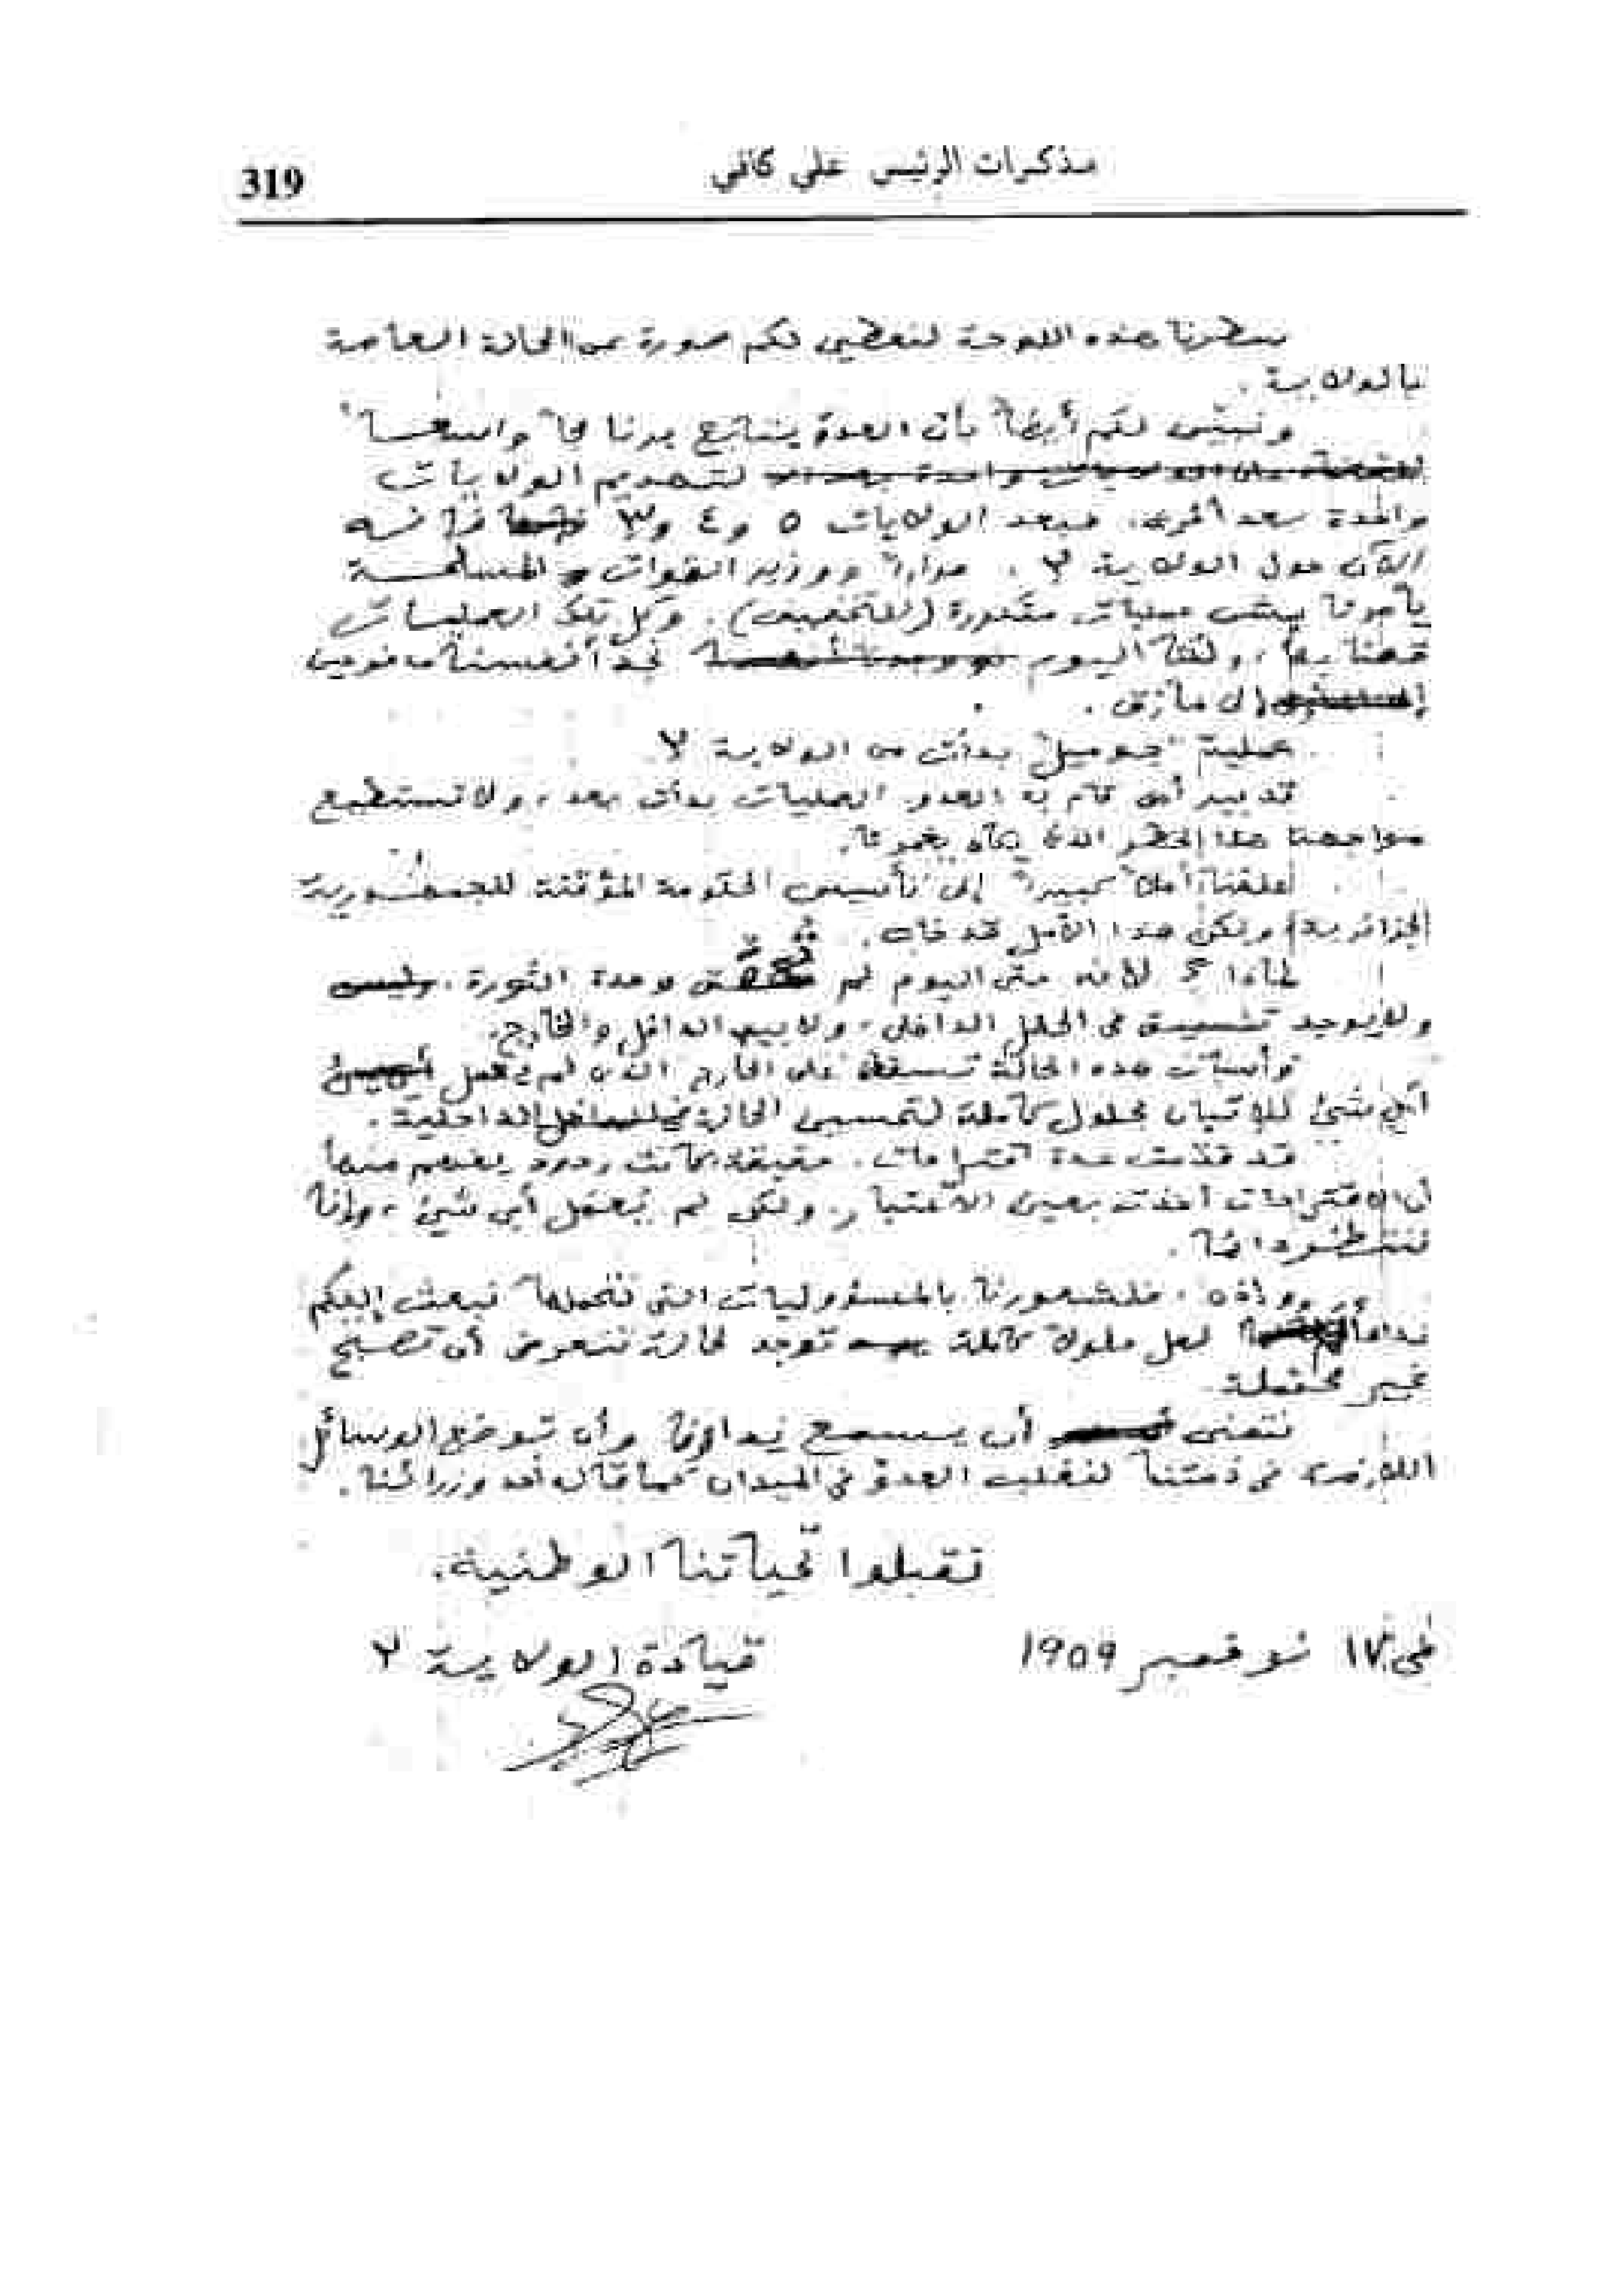 مذكرات الرئيس علي كافي
319
سطرنا هذه اللوحة لنعطي لكم صورة عن الحالة العامة
بالولاية .
ونبين لكم أيضاً بأن العدو يتابع برنا مجاً واسعاً
لتهديم الولايات
واحدة بعد أخرى. فبعد الولايات ٥ و ٤ و ٣
الآن حول الولاية ٢ . مراراً ووزير القوات المسلحة
يأمرنا بشن عمليات متكررة (للتخفيف) . وكل تلك العمليات
قمنا بها ، ولكننا اليوم نجد أنفسنا مدفوعين
إلى مأزق .
عملية "جوميل" بدأت من الولاية ٢
تدبير أين قام به العدو العمليات بدأت بعد ، ولا نستطيع
مواجهة هذا الخطر الذي يغمرنا.
علقنا أملاً كبيراً إلى تأسيس الحكومة المؤقتة للجمهورية
الجزائرية ولكن هذا الأمل قد خاب .
لماذا ؟ لأنه حتى اليوم لم تحقق وحدة الثورة .
ولا يوجد تنسيق في الحقل الداخلي ، ولا بين الداخل والخارج.
هذه الحالة تسقط على الخارج الذي لم يعمل
أي شيئ للإتيان بحلول كاملة لتحسين الحالة الداخلية .
قد قدمت عدة اقتراحات . حقيقة كانت ردود يفهم منها
أن الاقتراحات أخذت بعين الاعتبار . ولكن لم يعمل أي شيئ ، وإننا
ننتظر دائماً .
وإذن ، فلشعورنا بالمسؤوليات التي نتحملها نبعث إليكم
نداءاً لعل حلولاً كاملة توجد لحالة تتعرض أن تصبح
غير محتملة
نتمنى أن يسمع نداؤنا وأن توضع الوسائل
اللازمة في ذمتنا لنغلب العدو في الميدان كما قال أحد وزرائنا .
تقبلوا تحياتنا الوطنية.
في ١٧ نوفمبر ١٩٥٩
قيادة الولاية ٢